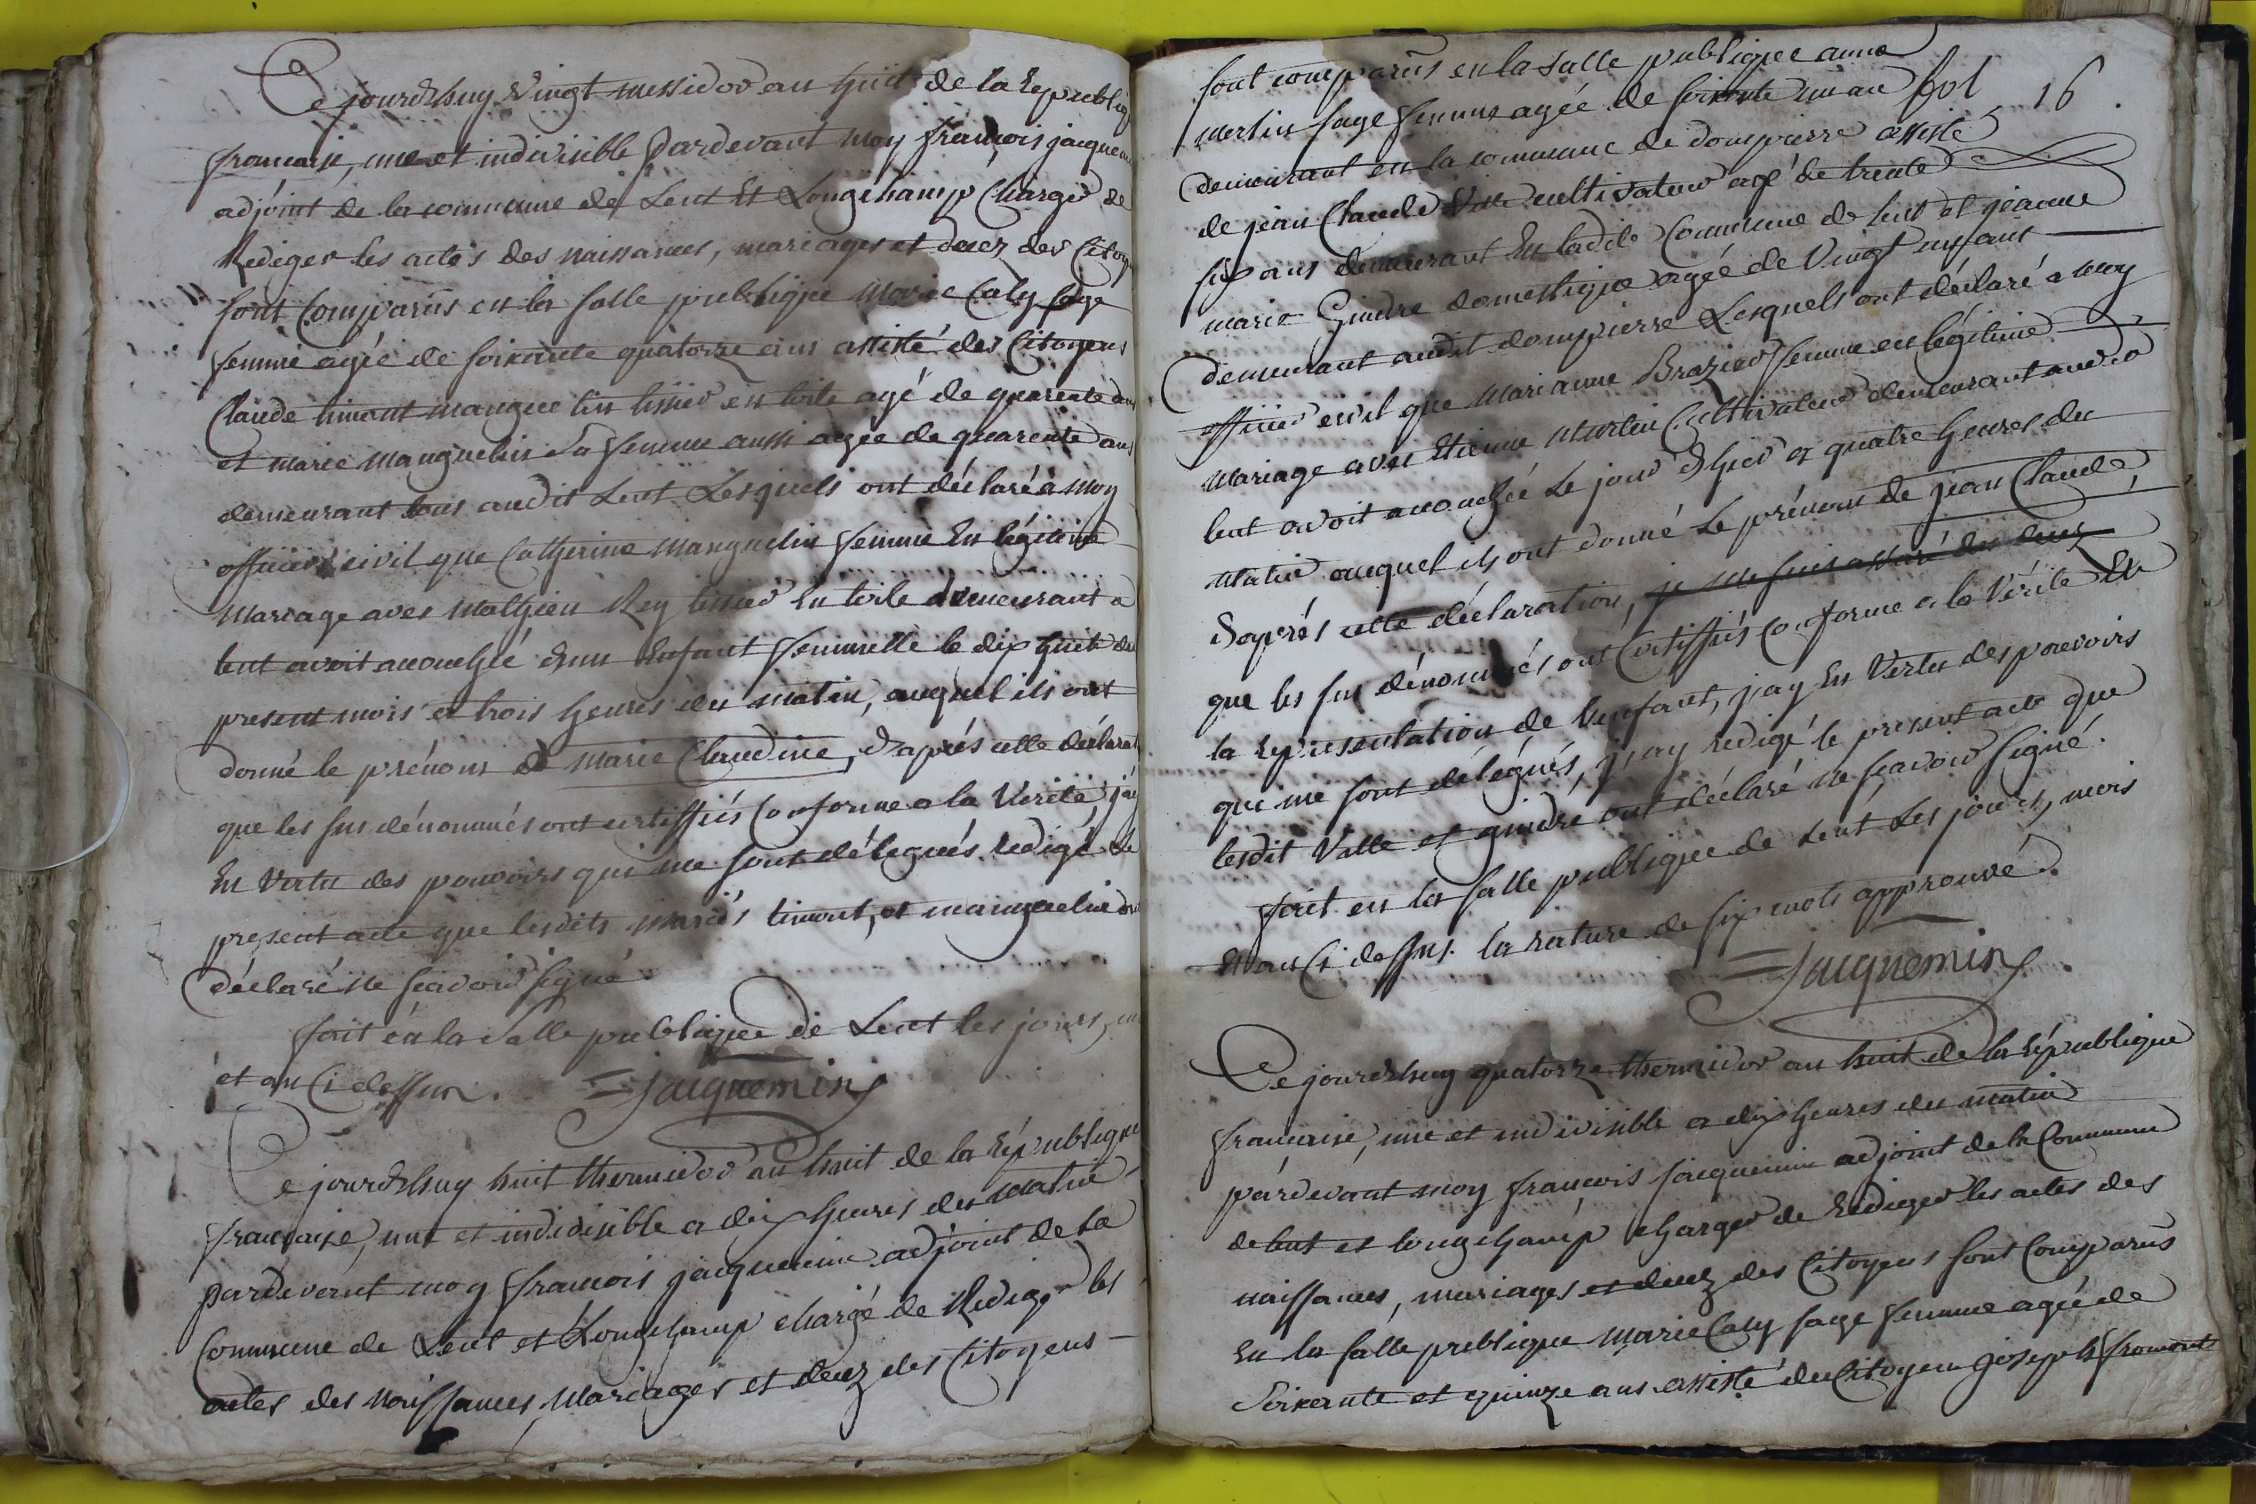 Cejourdhuy Vingt messidor an huit de la Republiq
francaise, une et indivisible Pardevant moy françois jacquem
adjoint de la commune de Lent Et Longchamp Chargé de
Rediger les actes des naissances, mariages et decez des Citoy
sont Comparus en la salle publique Marie Caly sage
femme agée de soixante quatorze ans assisté des Citoyens
Claude timont tissier en toile agé de quarente ans
et marie Manguelin Sa femme aussi agée de quarente ans
demeurant tous audit Lent Lesquels ont déclaré a Moy
officier civil que Catherine Manguelin femme En légitime
Mariage avec Mathieu Rey tissier En toile demeurant a
lent avoit accouchée d'un Enfant femmelle le dix huit du
present mois a trois heures du matin, auquel ils ont
donné le prénom de Marie Claudine, d'après cette déclarat
que les sus dénommés ont certiffiés Conforme a la Verité, j'ay
En Vertu des pouvoirs qui me sont délegués, Redigé le
present acte que lesdits mariés timont, et manguelin ont
déclaré ne sçavoir signé
fait en la Salle publique de Lent les jours, m
et an Ci dessus. Jacquemin
Cejourdhuy huit thermidor an huit de la République
francaise, une et indivisible a dix heures du matin
pardevant moy francois jacquemin adjoint de la
Commune de Lent et Longchamp chargé de Rediger les
actes des Naissances, Mariages et decez des Citoyens
sont comparus en la salle publique anne
merlin sage femme agée de soixante un an fol 16.
demeurant en la commune de dompierre assisté
de jean Claude cultivateur agé de trente
six ans demeurant En ladite Commune de lent et jeanne
marie Gindre domestique agée de Vingt ans
demeurant audit dompierre Lesquels ont déclaré a moy
officier civil que Marianne Brazier femme en légitime
Mariage avec Etienne Martin Cultivateur demeurant audit
lent avoit accouchée Le jour d'hier a quatre heures du
Matin auquel ils ont donné Le prénom de jean Claude,
d'après cette déclaration, je me suis assuré des deux
que les sus dénommés ont Certiffiés Conforme a la Vérité Et
la Representation de l'enfant, j'ay En Vertu des pouvoirs
qui me sont délégués, j'ay redigé le present acte que
lesdit Valle et gindre ont déclaré ne sçavoir signé.
fait en la salle publique de Lent Les jours, mois
Et an Ci dessus. la rature de six mots approuvé.
Jacquemin
Cejourdhuy quatorze thermidor an huit de la République
francaise, une et indivisible a dix heures du matin
pardevant moy francois jacquemin adjoint de la Commune
de lent et longchamp chargé de Rediger les actes des
naissances, mariages et decez des Citoyens sont Comparus
En la salle publique Marie Caly sage femme agée de
Soixante et quinze ans assisté du Citoyen joseph fromont